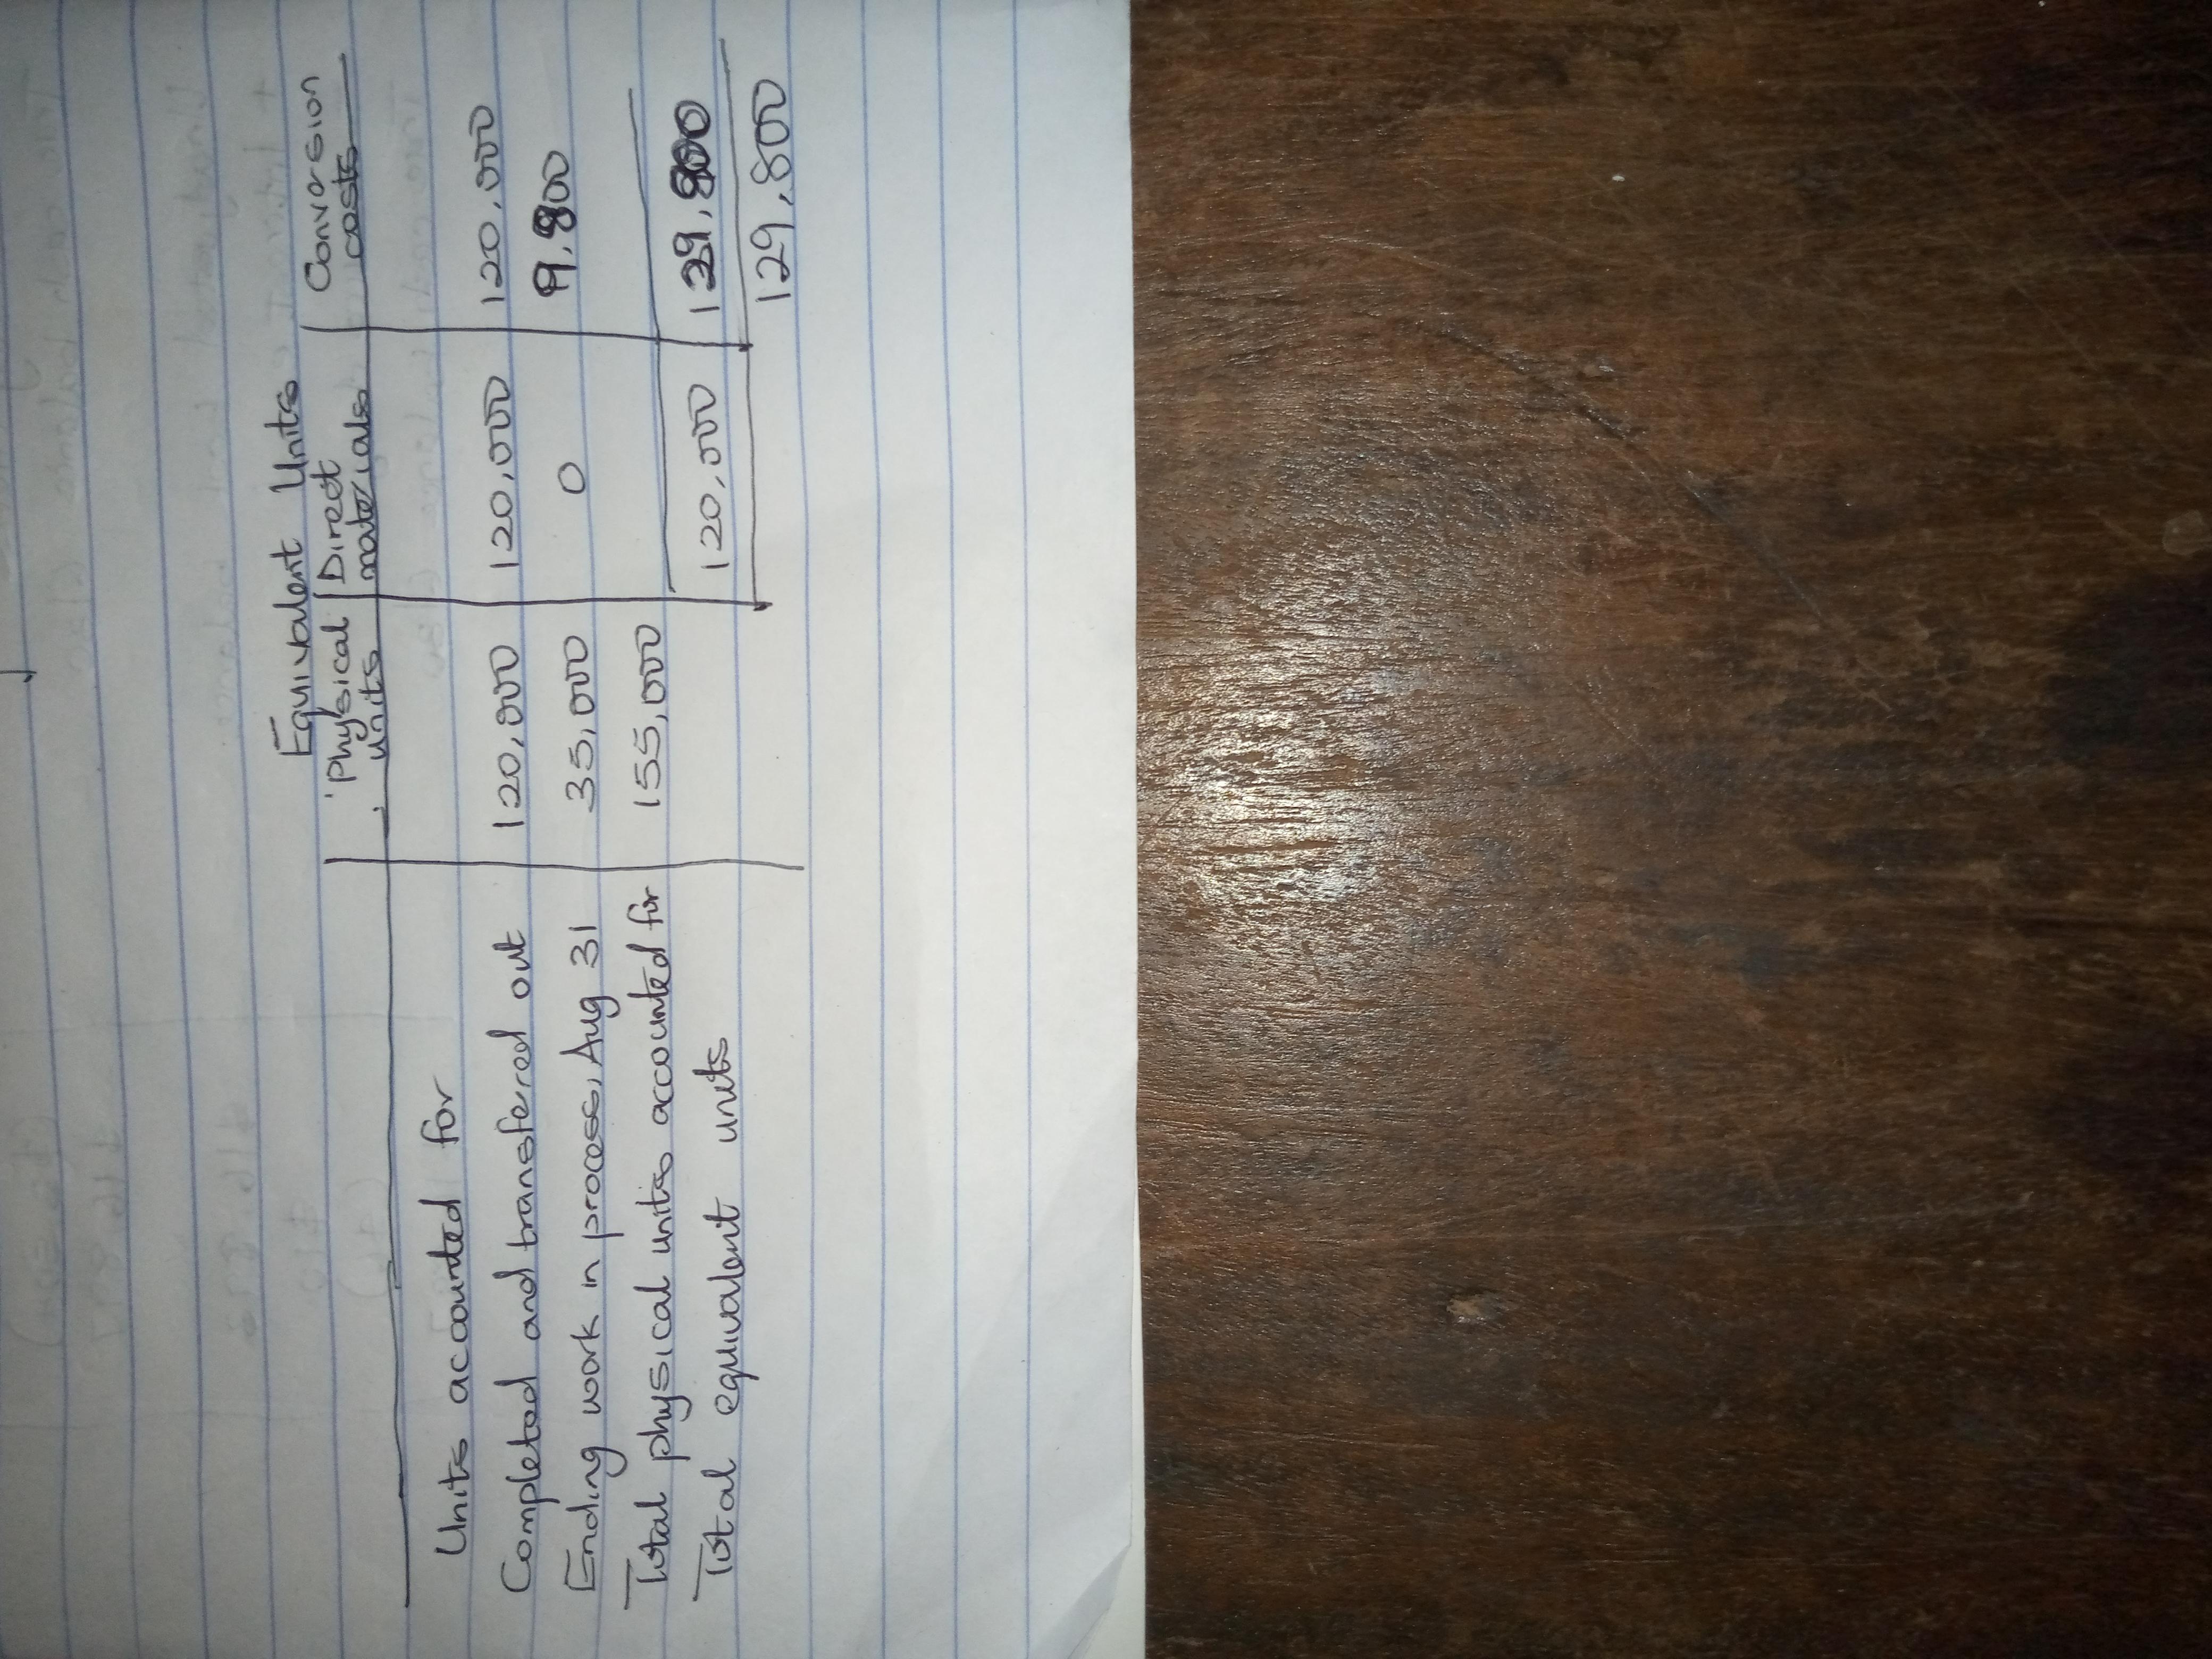 Equivalent Units
Physical Direct Conversion
units materials costs
Units accounted for
Completed and transfered out 120,000 120,000 120,000
Ending work in process, Aug 31 35,000 0 9,800
Total physical units accounted for 155,000
Total equivalent units 120,000 129,800
129,800